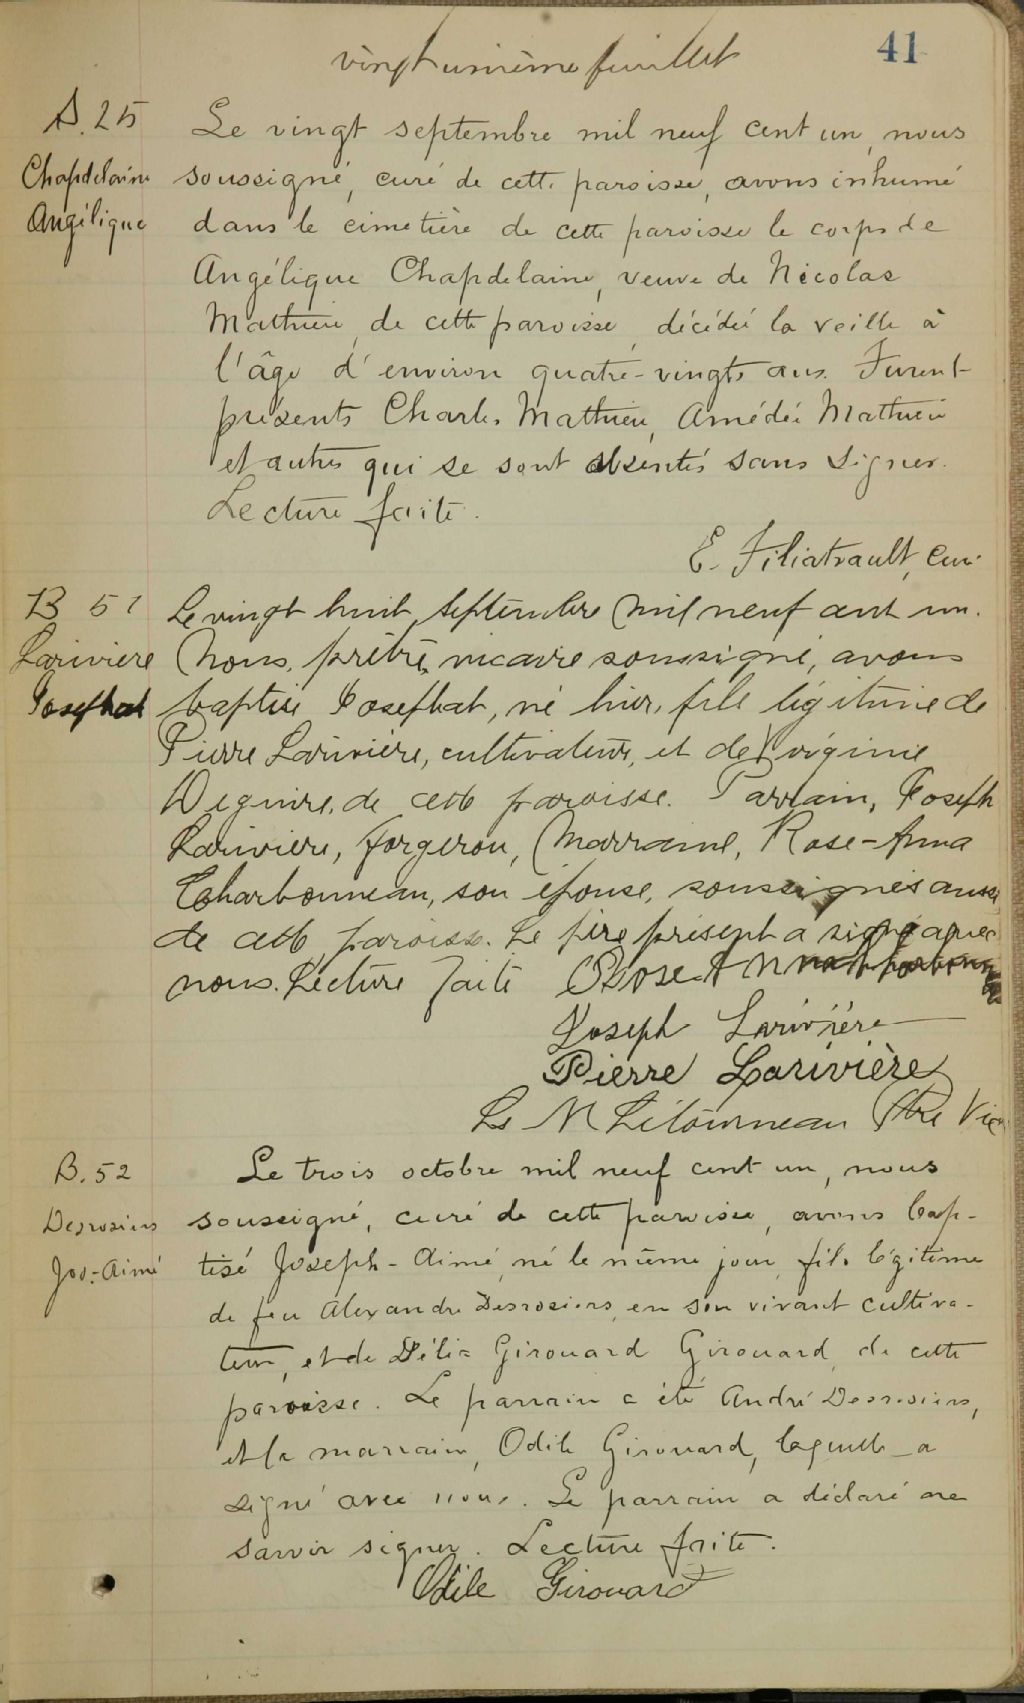 vingt unième feuillet
41
S. 25
Chapdelaine
Angélique
Le vingt septembre mil neuf cent un, nous
soussigné, curé de cette paroisse, avons inhumé
dans le cimetière de cette paroisse le corps de
Angélique Chapdelaine, veuve de Nicolas
Mathieu, de cette paroisse, décédée la veille à
l'âge d'environ quatre-vingts ans. Furent
présents Charles Mathieu, Amédée Mathieu
et autres qui se sont absentés sans signer.
Lecture faite.
E. Filiatrault, curé
B 51
Larivière
Josephat
Le vingt huit septembre mil neuf cent un.
Nous, prêtre, vicaire soussigné, avons
baptisé Josephat, né hier, fils légitime de
Pierre Larivière, cultivateur, et de Virginie
Deguire, de cette paroisse. Parrain, Joseph
Larivière, forgeron, Marraine, Rose-Anna
Charbonneau, son épouse, soussignés aussi
de cette paroisse. Le père présent a signé avec
nous. Lecture faite
Joseph Larivière
Pierre Larivière
Ls N Létourneau Ptre Vic
B. 52
Desrosiers
Jos-Aimé
Le trois octobre mil neuf cent un, nous
soussigné, curé de cette paroisse, avons bap-
tisé Joseph-Aimé, né le même jour, fils légitime
de feu Alexandre Desrosiers, en son vivant cultiva-
teur, et de Délia Girouard Girouard, de cette
paroisse. Le parrain a été André Desrosiers,
et la marraine, Odile Girouard, laquelle a
signé avec nous. Le parrain a déclaré ne
savoir signer. Lecture faite.
Odile Girouard